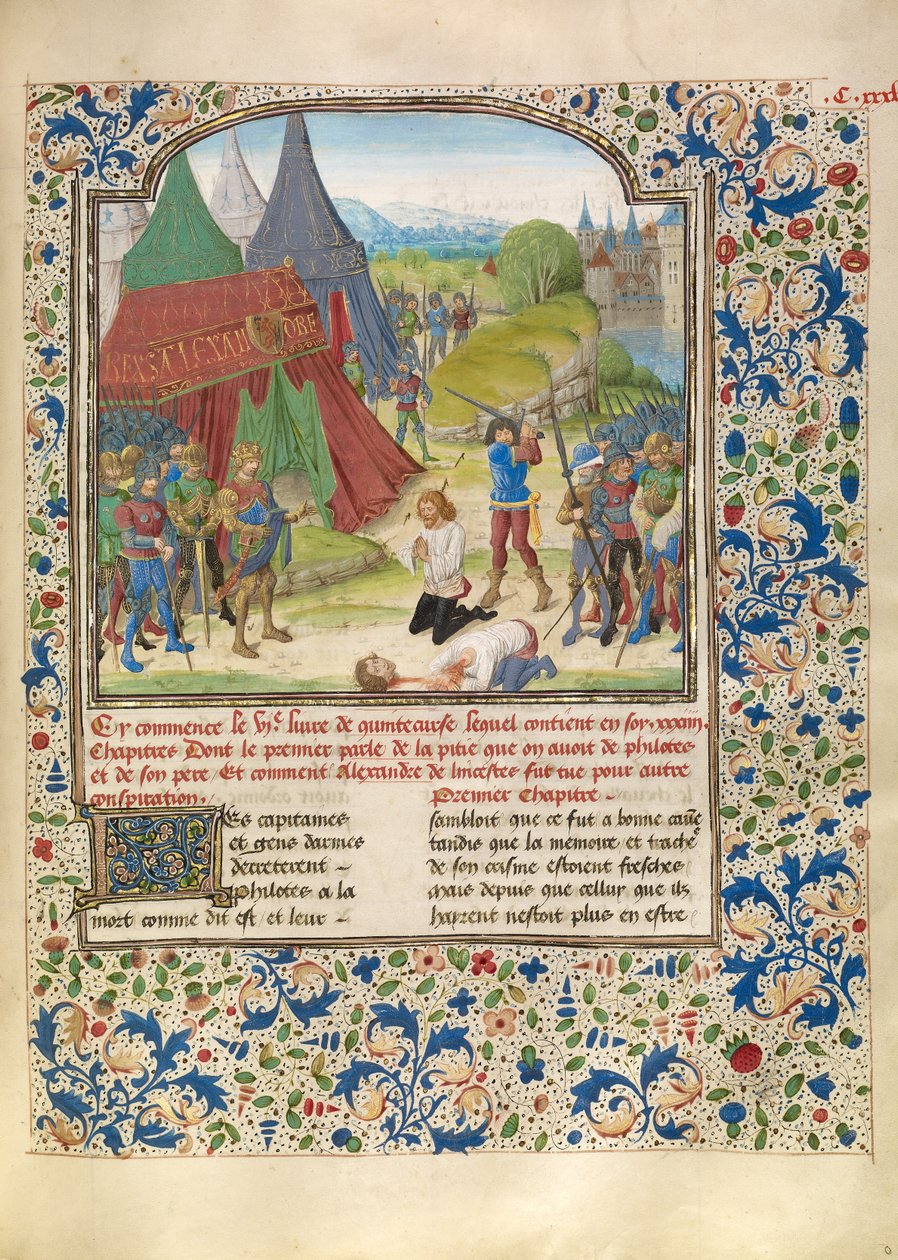 .C. xxxl
REX ALEXAN ORE
Cy commence le vje liure de quinte curse lequel contient en soy .xxxiiij.
Chapitres Dont le premier parle de la pitie que on auoit de philotes
et de son pere / Et comment Alexandre de lincestes fut tue pour autre
conspiration. Premier Chapitre ~
Les capitaines
et gens darmes
decreterent ~
Philotes a la
mort comme dit est / et leur ~
sambloit que ce fut a bonne cauē
tandis que la memoire et trache
de son crisme estoient fresches
Mais depuis que celluy que ils
hayrent nestoit plus en estre